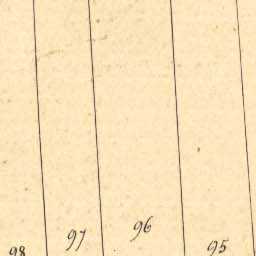 98
97
96
95